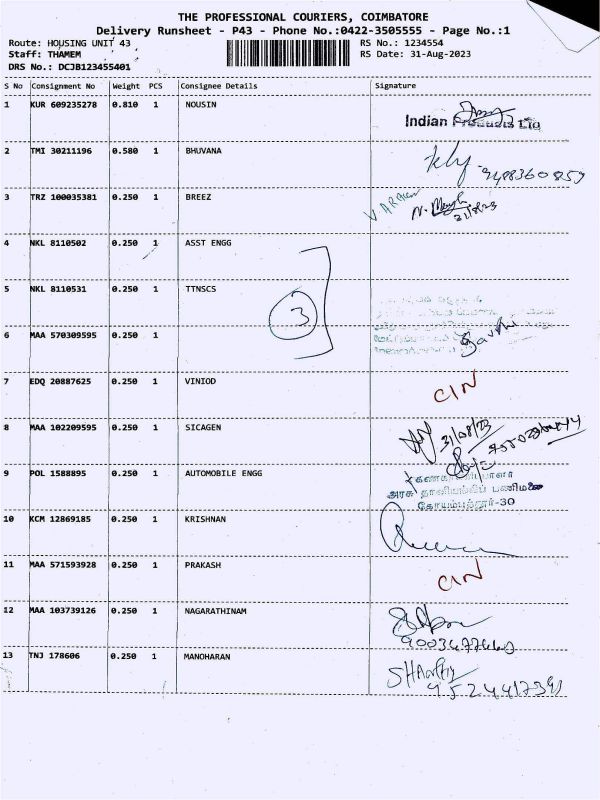 THE PROFESSIONAL COURIERS, COIMBATORE
Delivery Runsheet - P43 - Phone No.:0422-3505555 - Page No.:1
Route: HOUSING UNIT 43 RS No.: 1234554
Staff: THAMEM RS Date: 31-Aug-2023
DRS No.: DCJB123455401
S No Consignment No Weight PCS Consignee Details Signature
1 KUR 609235278 0.810 1 NOUSIN
Indian Products Ltd
2 TMI 30211196 0.580 1 BHUVANA
9488360859
3 TRZ 100035381 0.250 1 BREEZ
31/8/23
4 NKL 8110502 0.250 1 ASST ENGG
5 NKL 8110531 0.250 1 TTNSCS
3
6 MAA 570309595 0.250 1
7 EDQ 20887625 0.250 1 VINIOD CIN
8 MAA 102209595 0.250 1 SICAGEN
31/08/23
9 POL 1588895 0.250 1 AUTOMOBILE ENGG
அரசு தானியங்கிப் பணிமனை
கோயம்புத்தூர்-30
10 KCM 12869185 0.250 1 KRISHNAN
11 MAA 571593928 0.250 1 PRAKASH CIN
12 MAA 103739126 0.250 1 NAGARATHINAM
13 TNJ 178606 0.250 1 MANOHARAN